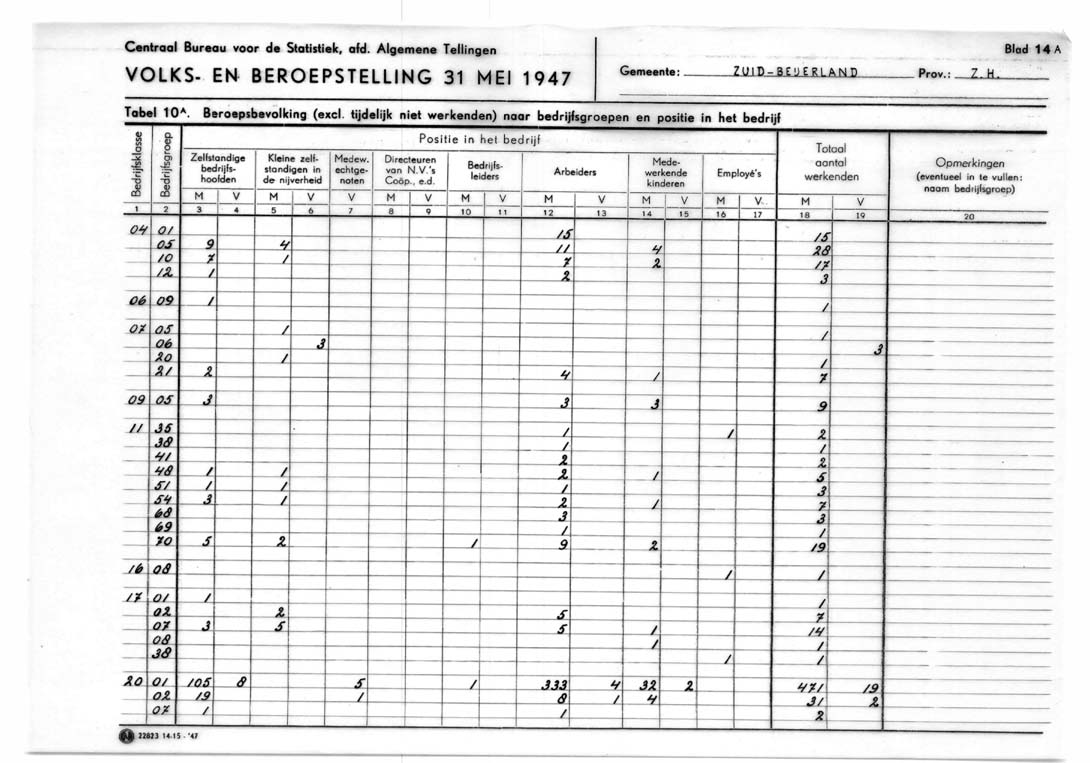 Centraal Bureau voor de Statistiek, afd. Algemene Tellingen
Blad 14 A
VOLKS- EN BEROEPSTELLING 31 MEI 1947
Gemeente: ZUID-BEIJERLAND Prov.: Z.H.
Tabel 10A. Beroepsbevolking (excl. tijdelijk niet werkenden) naar bedrijfsgroepen en positie in het bedrijf
Bedrijfsklasse
Bedrijfsgroep
Positie in het bedrijf
Zelfstandige bedrijfs-
hoofden
Kleine zelf-
standigen in
de nijverheid
Medew.
echtge-
noten
Directeuren
van N.V.'s
Coöp., e.d.
Bedrijfs-
leiders
Arbeiders
Mede-
werkende
kinderen
Employé's
Totaal
aantal
werkenden
Opmerkingen
(eventueel in te vullen:
naam bedrijfsgroep)
M V M V V M V M V M V M V M V M V
1 2 3 4 5 6 7 8 9 10 11 12 13 14 15 16 17 18 19 20
04 01 15 15
05 9 4 11 4 28
10 7 1 7 2 17
12 1 2 3
06 09 1 1
07 05 1 1
06 3 3
20 1 1
21 2 4 1 7
09 05 3 3 3 9
11 35 1 1 2
38 1 1
41 2 2
48 1 1 2 1 5
51 1 1 1 3
54 3 1 2 1 7
68 3 3
69 1 1
70 5 2 1 9 2 19
16 08 1 1
17 01 1 1
02 2 5 7
07 3 5 5 1 14
08 1 1
38 1 1
20 01 105 8 5 1 333 4 32 2 471 19
02 19 1 8 1 4 31 2
07 1 1 2
22823 14-15 - '47